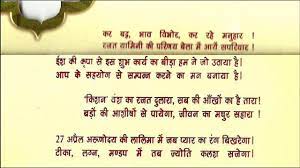 कर बद्ध, भाव विभोर, कर रहे मनुहार !
रजत यामिनी की परिणय बेला में आयें सपरिवार !
ईश की कृपा से इस शुभ कार्य का बीड़ा हम ने जो उठाया है।
आप के सहयोग से सम्पन्न करने का मन बनाया है।
'किशन' वंश का रजत दुलारा, सब की आँखों का है तारा
बड़ों की आशीषों से पायेगा, जीवन का मधुर सहारा।
27 अप्रैल अरूणोदय की लालिमा में जब प्यार का रंग बिखरेगा!
टीका, लग्न, मण्डप में तब ज्योति कलश सजेगा।